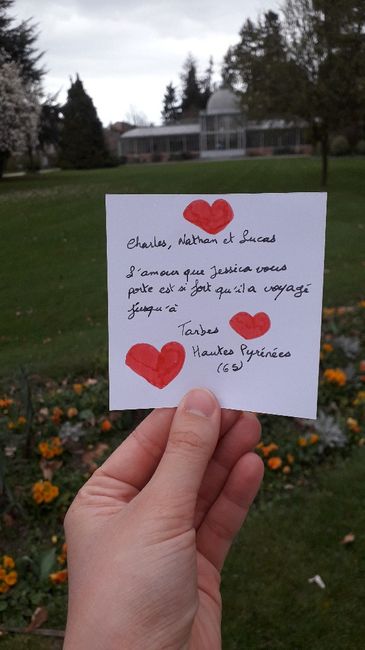 Charles, Nathan et Lucas
L'amour que Jessica vous
porte est si fort qu'il a voyagé
jusqu'à
Tarbes
Hautes Pyrénées
(65)